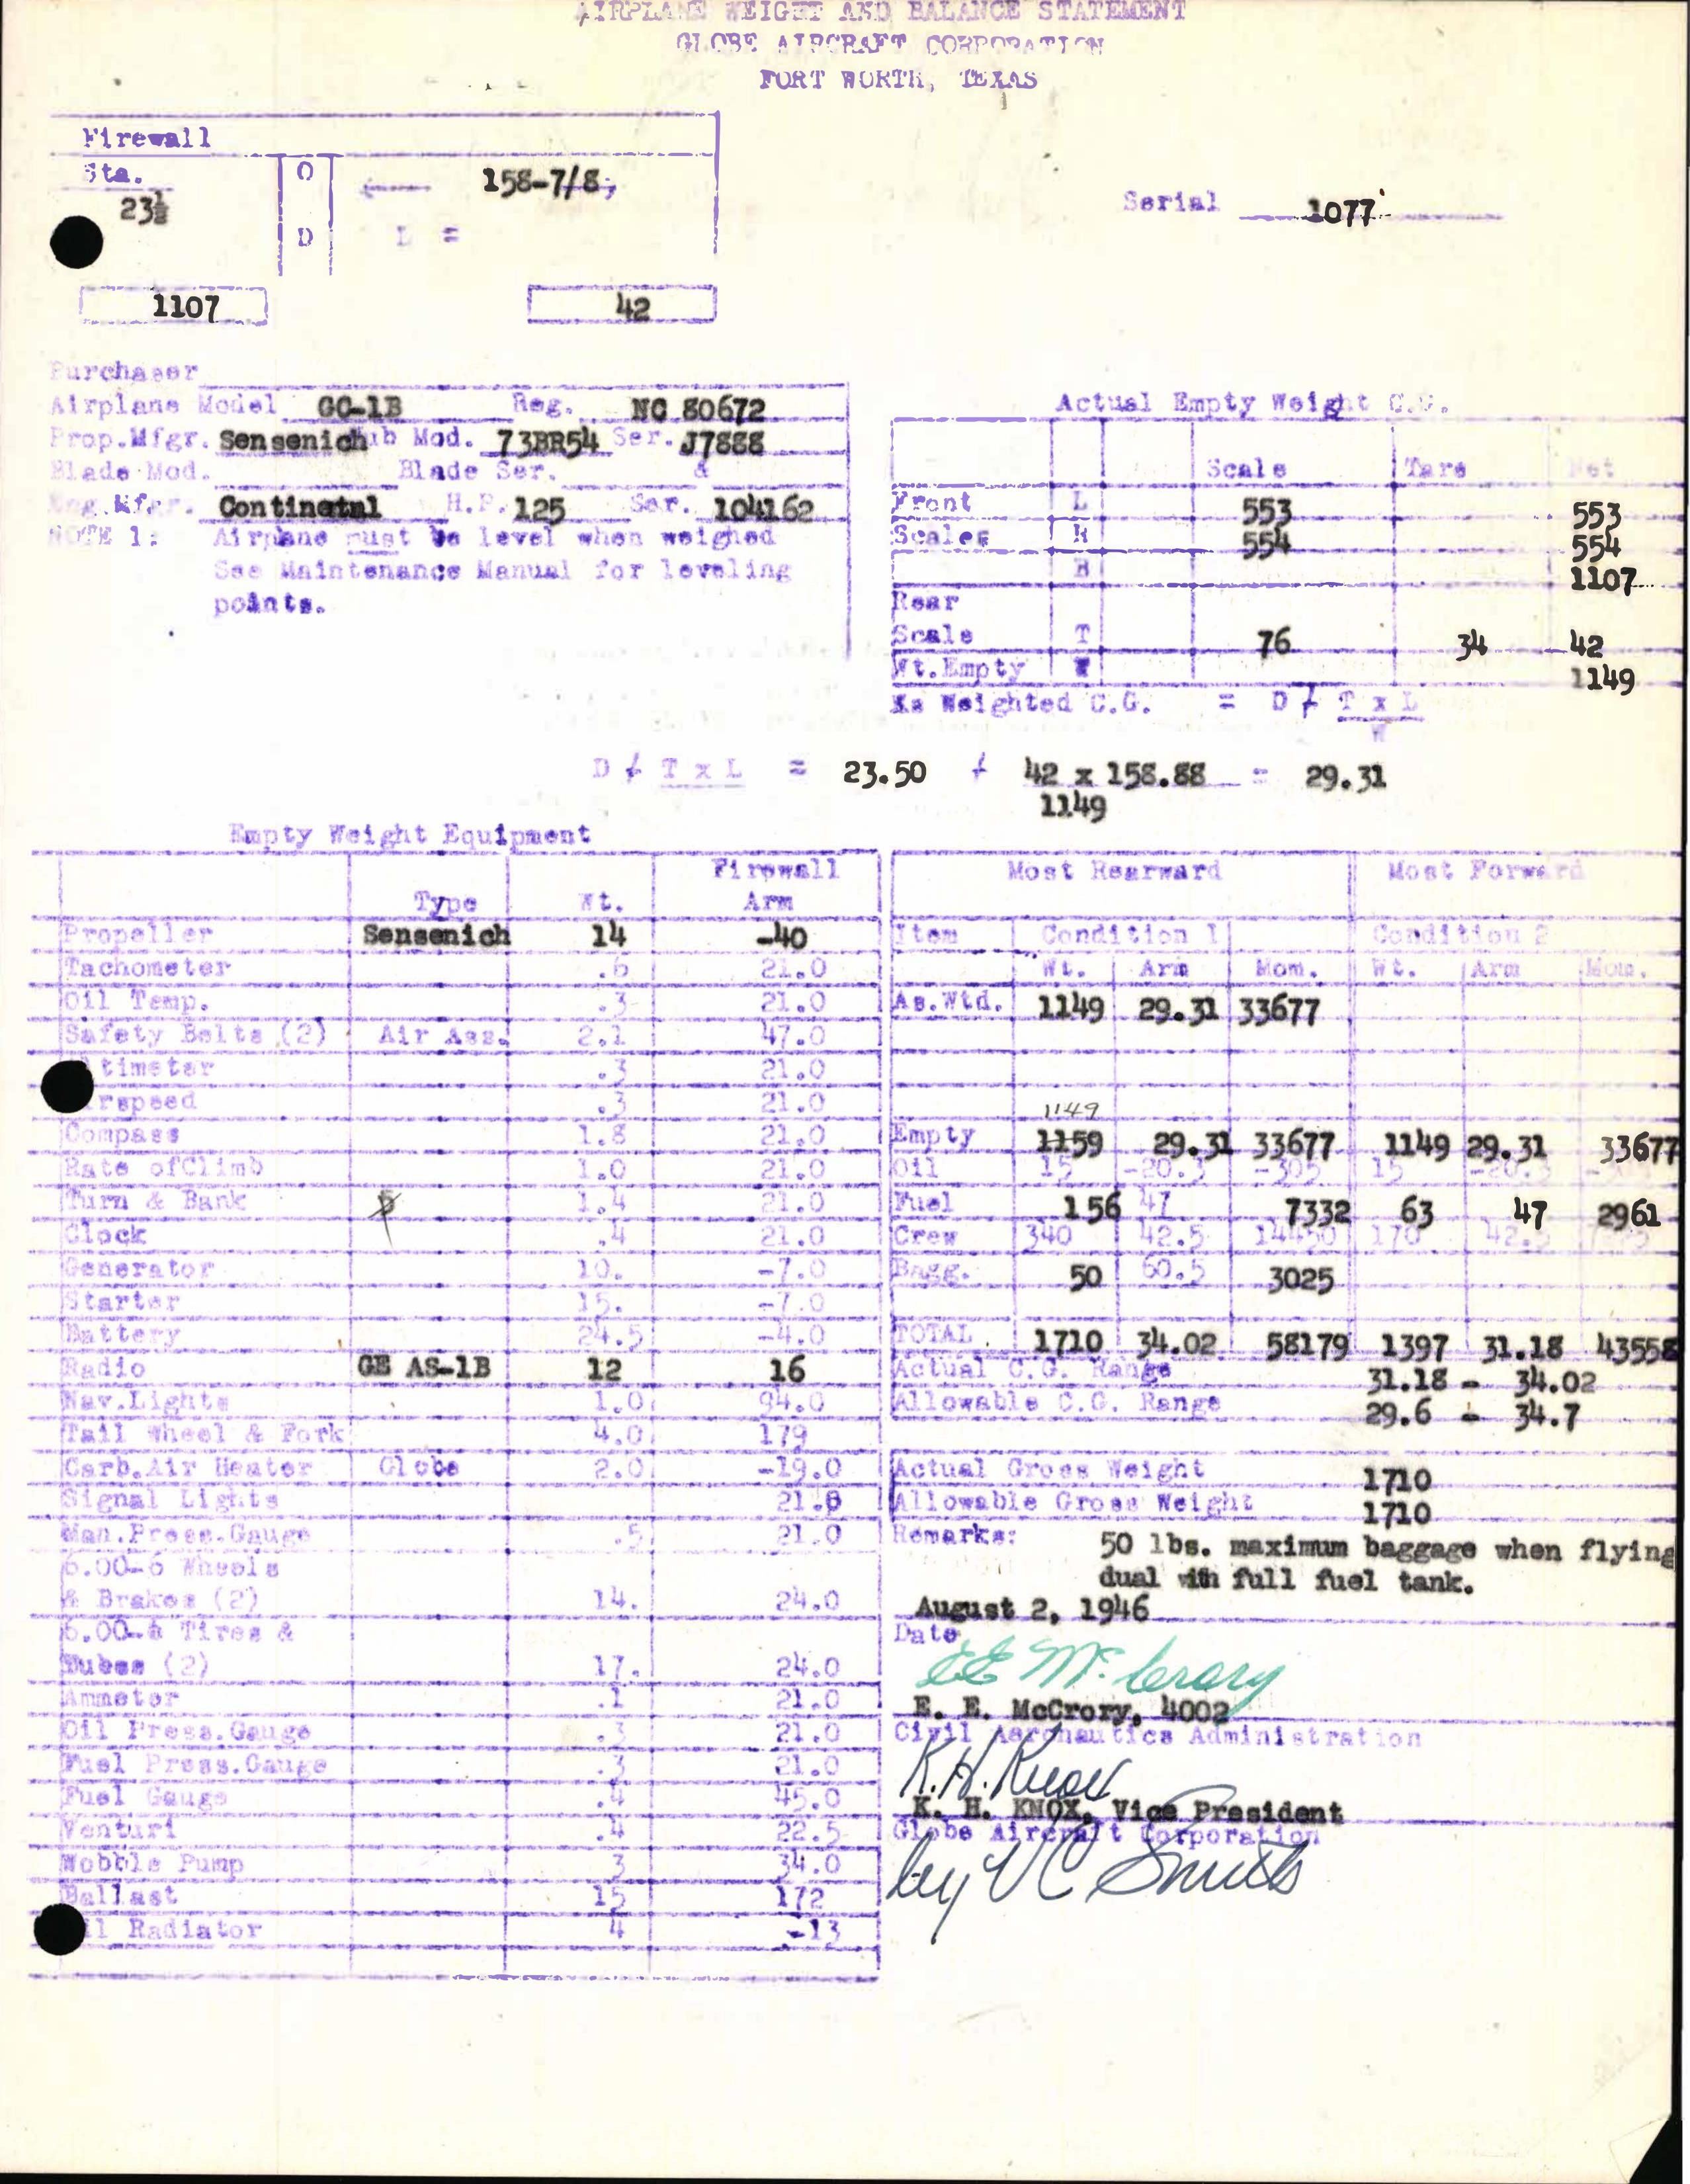 AIRPLANE WEIGHT AND BALANCE STATEMENT
GLOBE AIRCRAFT CORPORATION
FORT WORTH, TEXAS
Firewall
Sta. O 158-7/8;
23½
D L =
Serial 1077
1107 42
Purchaser
Airplane Model GC-1B Reg. NC 80672
Prop.Mfgr. Sensenich Hub Mod. 73BR54 Ser. J7888
Blade Mod. Blade Ser. &
Eng.Mfgr. Continetal H.P. 125 Ser. 104162
NOTE 1: Airplane must be level when weighed
See Maintenance Manual for leveling
points.
Actual Empty Weight C.G.
Scale Tare Net
Front L 553 553
Scales R 554 554
B 1107
Rear
Scale T 76 34 42
Wt.Empty W 1149
As Weighted C.G. = D + T x L
W
D + T x L = 23.50 + 42 x 158.88 = 29.31
1149
Empty Weight Equipment
Type Wt. Firewall Arm
Propeller Sensenich 14 -40
Tachometer 21.0
Oil Temp. .3 21.0
Safety Belts (2) Air Ass. 2.1 47.0
timeter .3 21.0
rspeed .3 21.0
Compass 1.8 21.0
Rate ofClimb 1.0 21.0
Turn & Bank 1.4 21.0
Clock .4 21.0
Generator 10. -7.0
Starter 15. -7.0
Battery 24.5 -4.0
Radio GE AS-1B 12 16
Nav.Lights 1.0 94.0
Tail Wheel & Fork 4.0 179
Carb.Air Heater Globe 2.0 -19.0
Signal Lights 21.0
Man.Press.Gauge .5 21.0
6.00-6 Wheels
& Brakes (2) 14. 24.0
6.00-6 Tires &
Tubes (2) 17. 24.0
Ammeter .1 21.0
Oil Press.Gauge .3 21.0
Fuel Press.Gauge .3 21.0
Fuel Gauge .4 45.0
Venturi .4 22.5
Wobble Pump 3 34.0
Ballast 15 172
il Radiator 4 -13
Most Rearward Most Forward
Item Condition 1 Condition 2
Wt. Arm Mom. Wt. Arm Mom.
As.Wtd. 1149 29.31 33677
1149
Empty 1159 29.31 33677 1149 29.31 33677
Oil 15 -20.3 -305 15 -20.3
Fuel 156 47 7332 63 47 2961
Crew 340 42.5 14450 170 42.5
Bagg. 50 60.5 3025
TOTAL 1710 34.02 58179 1397 31.18 43558
Actual C.G. Range 31.18 - 34.02
Allowable C.G. Range 29.6 - 34.7
Actual Gross Weight 1710
Allowable Gross Weight 1710
Remarks: 50 lbs. maximum baggage when flying
dual with full fuel tank.
August 2, 1946
Date
EE McCrory
E. E. McCrory, 4002
Civil Aeronautics Administration
K.H. Knox
K. H. KNOX, Vice President
Globe Aircraft Corporation
by VC Smith